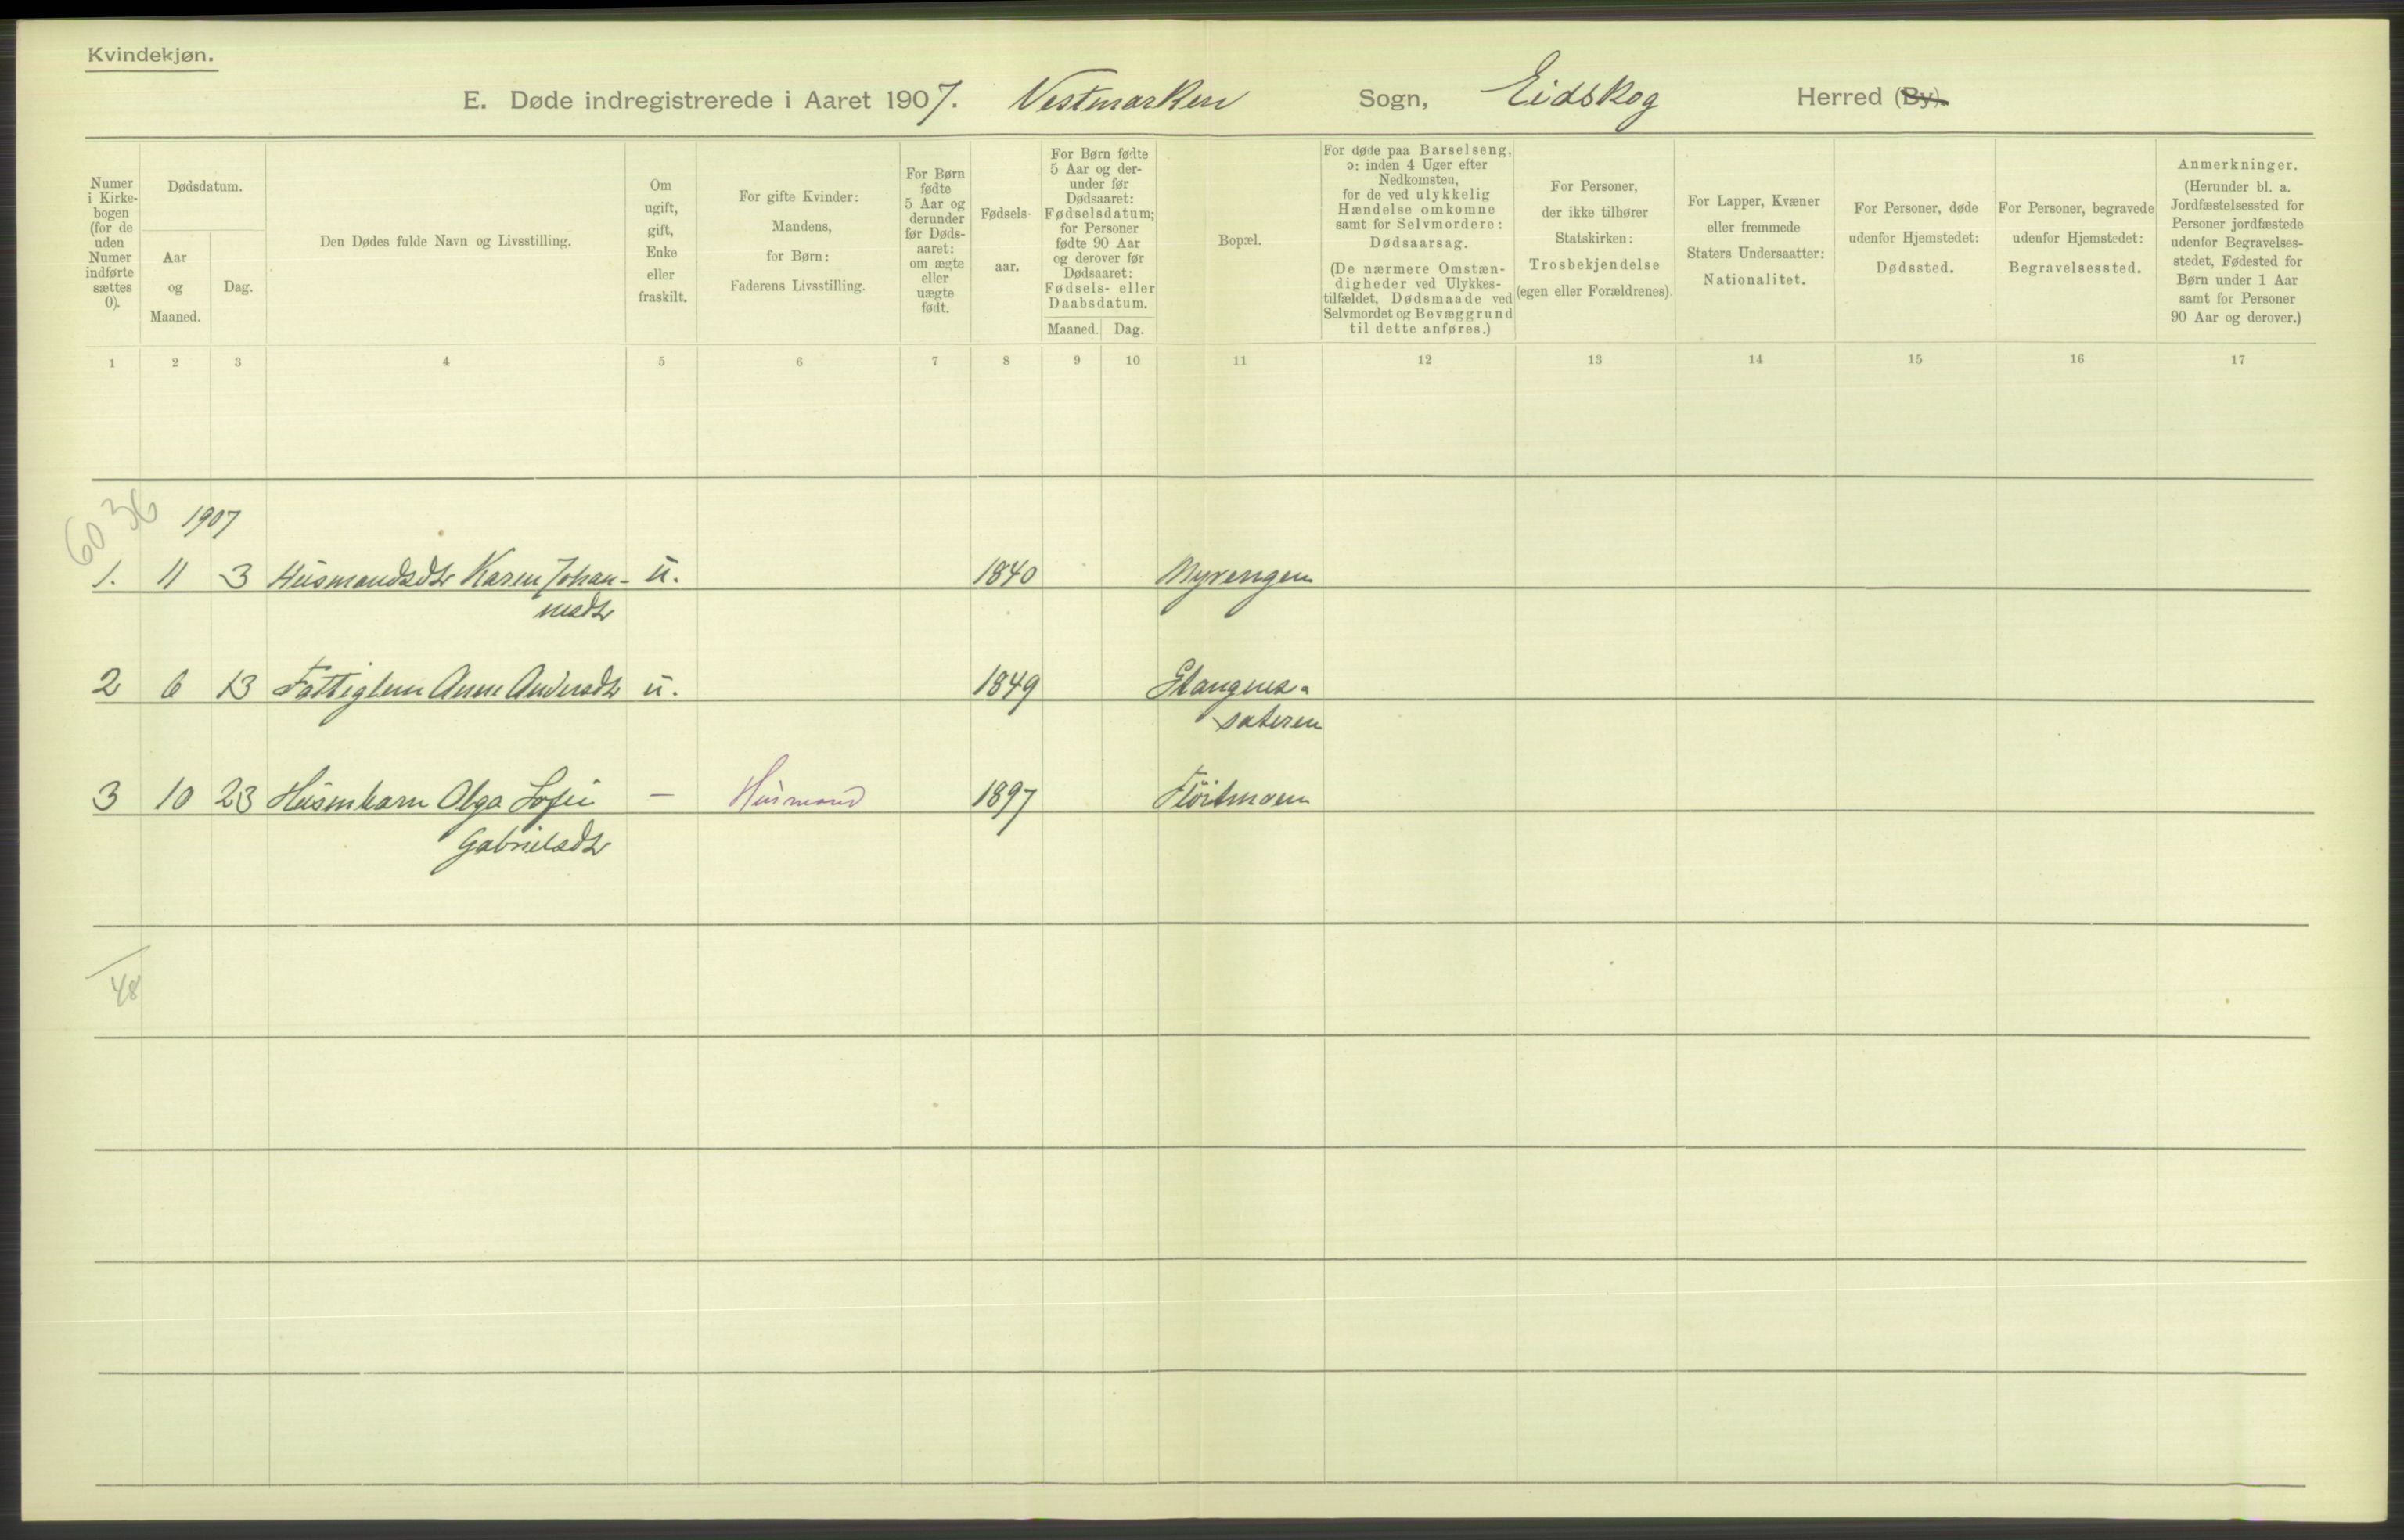 Kvindekjøn.
E. Døde indregistrerede i Aaret 1907. Vestmarken Sogn, Eidskog Herred (By).
Numer i Kirke-bogen (for de uden Numer indførte sættes 0).
Dødsdatum.
Aar og Maaned.
Dag.
Den Dødes fulde Navn og Livsstilling.
Om ugift, gift, Enke eller fraskilt.
For gifte Kvinder: Mandens, for Børn: Faderens Livsstilling.
For Børn fødte 5 Aar og derunder før Døds-aaret: om ægte eller uægte født.
Fødsels-aar.
For Børn fødte 5 Aar og der-under før Dødsaaret: Fødselsdatum; for Personer fødte 90 Aar og derover før Dødsaaret: Fødsels- eller Daabsdatum.
Maaned. Dag.
Bopæl.
For døde paa Barselseng, ɔ: inden 4 Uger efter Nedkomsten, for de ved ulykkelig Hændelse omkomne samt for Selvmordere: Dødsaarsag. (De nærmere Omstæn-digheder ved Ulykkes-tilfældet, Dødsmaade ved Selvmordet og Bevæggrund til dette anføres.)
For Personer, der ikke tilhører Statskirken: Trosbekjendelse (egen eller Forældrenes).
For Lapper, Kvæner eller fremmede Staters Undersaatter: Nationalitet.
For Personer, døde udenfor Hjemstedet: Dødssted.
For Personer, begravede udenfor Hjemstedet: Begravelsessted.
Anmerkninger. (Herunder bl. a. Jordfæstelsessted for Personer jordfæstede udenfor Begravelses-stedet, Fødested for Børn under 1 Aar samt for Personer 90 Aar og derover.)
1 2 3 4 5 6 7 8 9 10 11 12 13 14 15 16 17
60 36
1907
1. 11 3 Husmandsdtr Karen Johan- u. 1840 Myrengen
nesdtr
2 6 13 Fattiglem Anne Andersdtr u. 1849
sæteren
3 10 23 Husmbarn Olga Sofie — Husmand 1897
Gabrielsdtr
48